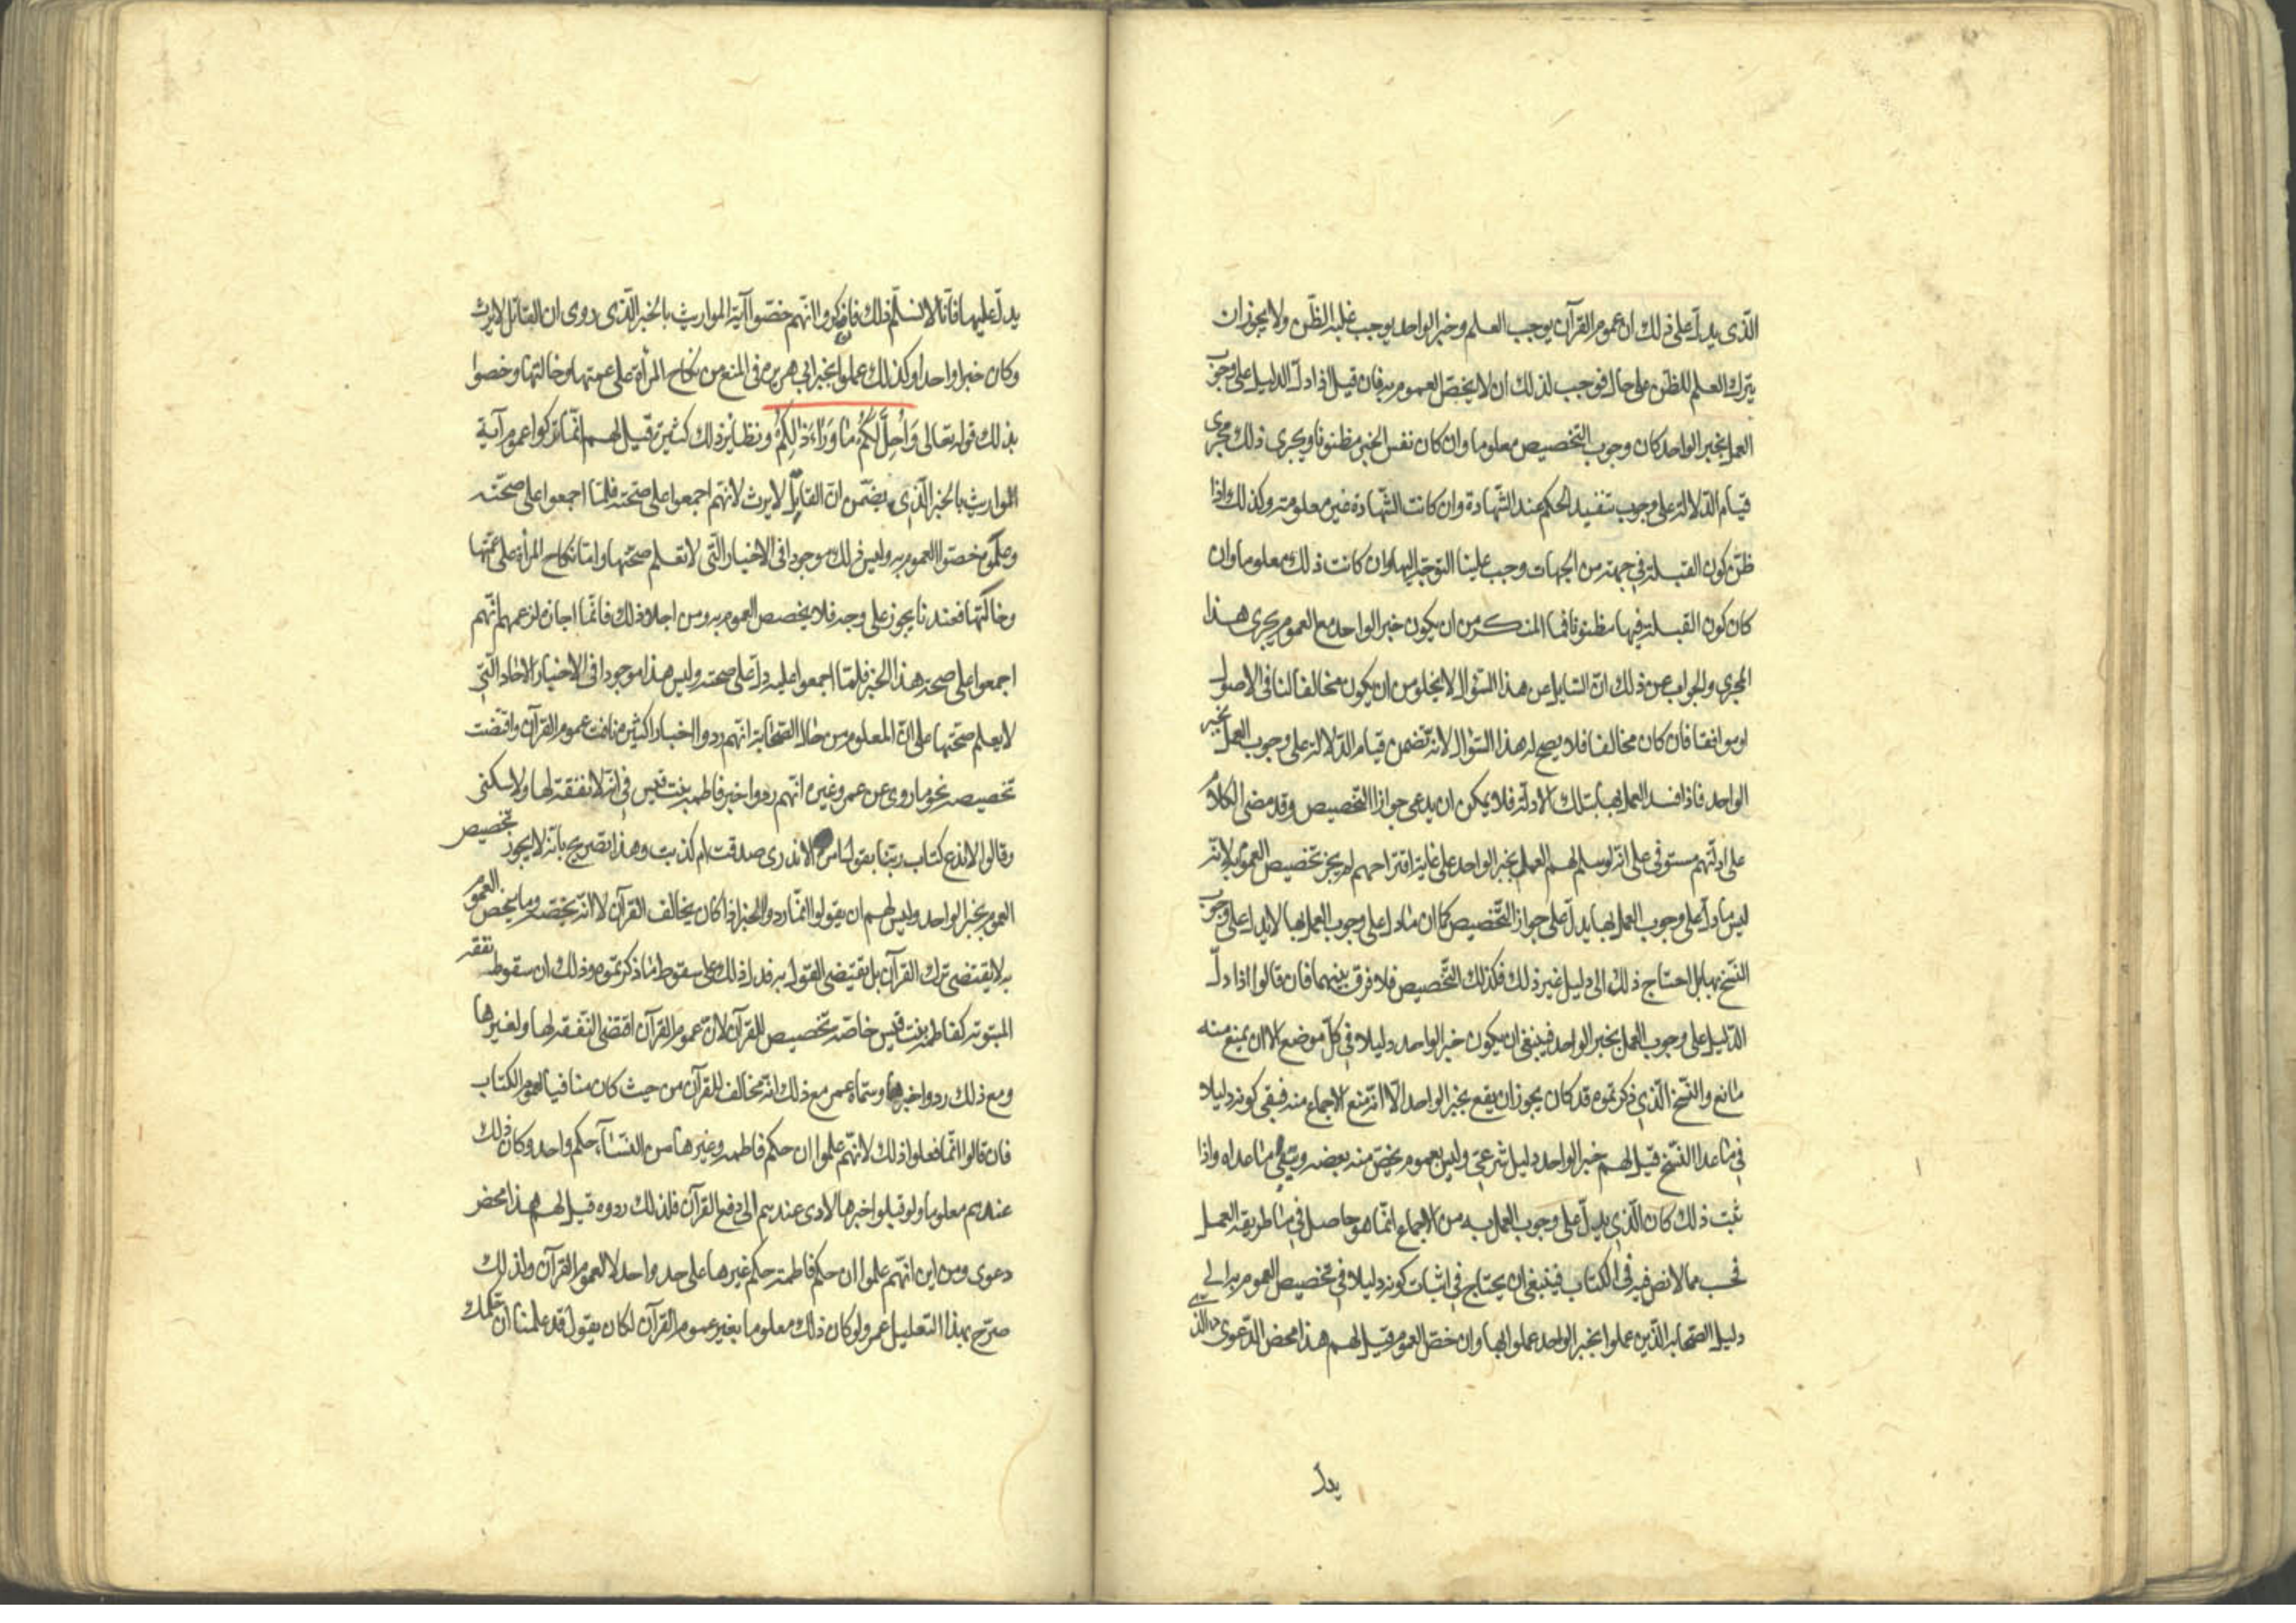 الّذى يدلّ على ذلك ان عموم القرآن يوجب العلم وخبر الواحد يوجب غلبة الظّن ولا يجوز ان
يترك العلم للظّن على حال فوجب لذلك ان لا يخصّ العموم به فان قيل اذا دلّ الدليل على وجوب
العمل بخبر الواحد كان وجوب التّخصيص معلوما وان كان نفس الخبر مظنونا ويجرى ذلك مجرى
قيام الدّلالة على وجوب تنفيد الحكم عند الشّهادة وان كانت الشّهادة غير معلومة وكذلك اذا
ظنّ كون القبلة في جهة من الجهات وجب علينا التوجّه اليها وان كانت ذلك معلوما وان
كان كون القبلة فيها مظنونا فما المنكر من ان يكون خبر الواحد مع العموم يجرى هذا
المجرى والجواب عن ذلك انّ السّايل عن هذا السّؤال لا يخلو من ان يكون مخالفا لنا فى الاصول
او موافقا فان كان مخالفا فلا يصح له هذا السّؤال لانّه تضمن قيام الدّلالة على وجوب العمل بخبر
الواحد فاذا فسد العمل بها بتلك الادلّة فلا يمكن ان يدعى جواز التّخصيص وقد مضى الكلام
على ادلّتهم مستوفى على انّه لو سلم لهم العمل بخبر الواحد على غاية اقتراحهم لم يجز تخصيص العموم به لانّه
ليس ما دلّ على وجوب العمل بها يدلّ على جواز التّخصيص كما ان ما دل على وجوب العمل بها لا يدل على وجوب
النّسخ بها بل احتاج ذلك الى دليل غير ذلك فكذلك التّخصيص فلا فرق بينهما فان قالوا اذا دلّ
الدّليل على وجوب العمل بخبر الواحد فينبغى ان يكون خبر الواحد دليلا في كلّ موضع الا ان يمنع منه
مانع والنّسخ الّذي ذكرتموه قد كان يجوز ان يقع بخبر الواحد الّا انّه منع الاجماع منه فبقى كونه دليلا
في ما عدا النّسخ قيل لهم خبر الواحد دليل شرعىّ وليس بعموم يخصّ منه بعضه ويبقى ما عداه واذا
ثبت ذلك كان الّذي يدلّ على وجوب العمل به من الاجماع انّما هو حاصل في ما طريقه العمل
فحسب مما لا نصّ فيه فى الكتاب فينبغى ان يحتاج في اثبات كونه دليلا في تخصيص العموم به الى
دليل الصّحابة الّذين عملوا بخبر الواحد عملوا بها وان خصّ العموم قيل لهم هذا محض الدّعوى
يدلّ
يدلّ عليها فانّا لا نسلّم ذلك فان ذكروا انّهم خصّوا آية المواريث بالخبر الّذى روى ان القاتل لا يرث
وكان خبرا واحدا وكذلك عملوا بخبر ابى هريره فى المنع من نكاح المرأة على عمتها وخالتها وخصوا
بذلك قوله تعالى وَاُحِلَّ لَكُمْ مٰا وَرٰاءَ ذٰلِكُمْ ونظاير ذلك كثيرة قيل لهم انّما تركوا عموم آية
المواريث بالخبر الّذي يضّمن انّ القاتل لا يرث لانّهم اجمعوا على صحّته فلمّا اجمعوا على صحّته
وعلموه خصّوا العموم به وليس ذلك موجودا فى الاخبار الّتى لا نعلم صحّتها وامّا نكاح المرأة على عمّتها
وخالتها فعندنا يجوز على وجه فلا يخصص العموم به ومن اجاز ذلك فانّما اجازه لزعمهم انّهم
اجمعوا على صحة هذا الخبر فلمّا اجمعوا عليه دلّ على صحته وليس هذا موجودا فى الاخبار الاحاد الّتي
لا يعلم صحتها على انّ المعلوم من حال الصّحابة انّهم ردوا اخبارا كثيرة نافت عموم القرآن واقتضت
تخصيصه نحو ما روى عن عمر وغيره انّهم ردوا خبر فاطمه بنت قيس في انّه لا نفقة لها ولا سكنى
وقالوا لا ندع كتاب ربّنا بقول امرأة لا ندرى صدقت ام كذبت وهذا تصريح بانّه لا يجوز تخصيص
العموم بخبر الواحد وليس لهم ان يقولوا انّما ردوا الخبر اذا كان يخالف القرآن لا انّه يخصّه وما يخص العموم
به لا يقتضى ترك القرآن بل يقتضى القول به فدل ذلك على سقوط ما ذكرتموه وذلك ان سقوط نفقه
المبتوتة كفاطمة بنت قيس خاصّة تخصيص للقرآن لانّ عموم القرآن اقتضى النّفقة لها ولغيرها
ومع ذلك ردوا خبرها وسمّاه عمر مع ذلك انّه مخالف للقرآن من حيث كان منافيا لعموم الكتاب
فان قالوا انّما فعلوا ذلك لانّهم علموا ان حكم فاطمه وغيرها من النّساء حكم واحد وكان ذلك
عندهم معلوما ولو قبلوا خبرها لادى عندهم الى دفع القرآن فلذلك ردوه قيل لهم هذا محض
دعوى ومن اين انّهم علموا ان حكم فاطمة حكم غيرها على حد واحد لا لعموم القرآن ولذلك
صرّح بهذا التعليل عمر ولو كان ذلك معلوما بغير عموم القرآن لكان يقول قد علمنا ان حكمك